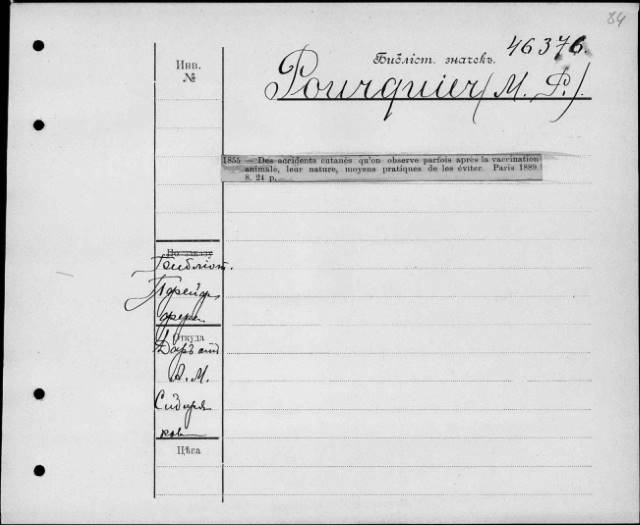 84
Инв.
№
Библіот. значекъ.
46376.
Pourquier (M. P.).
1855 — Des accidents cutanés qu'on observe parfois après la vaccination
animale, leur nature, moyens pratiques de les éviter. Paris 1889.
8. 24 p.
Библіот.
Прейф
фера
Откуда
Даръ
А. М.
Сибиря
кова
Цѣна